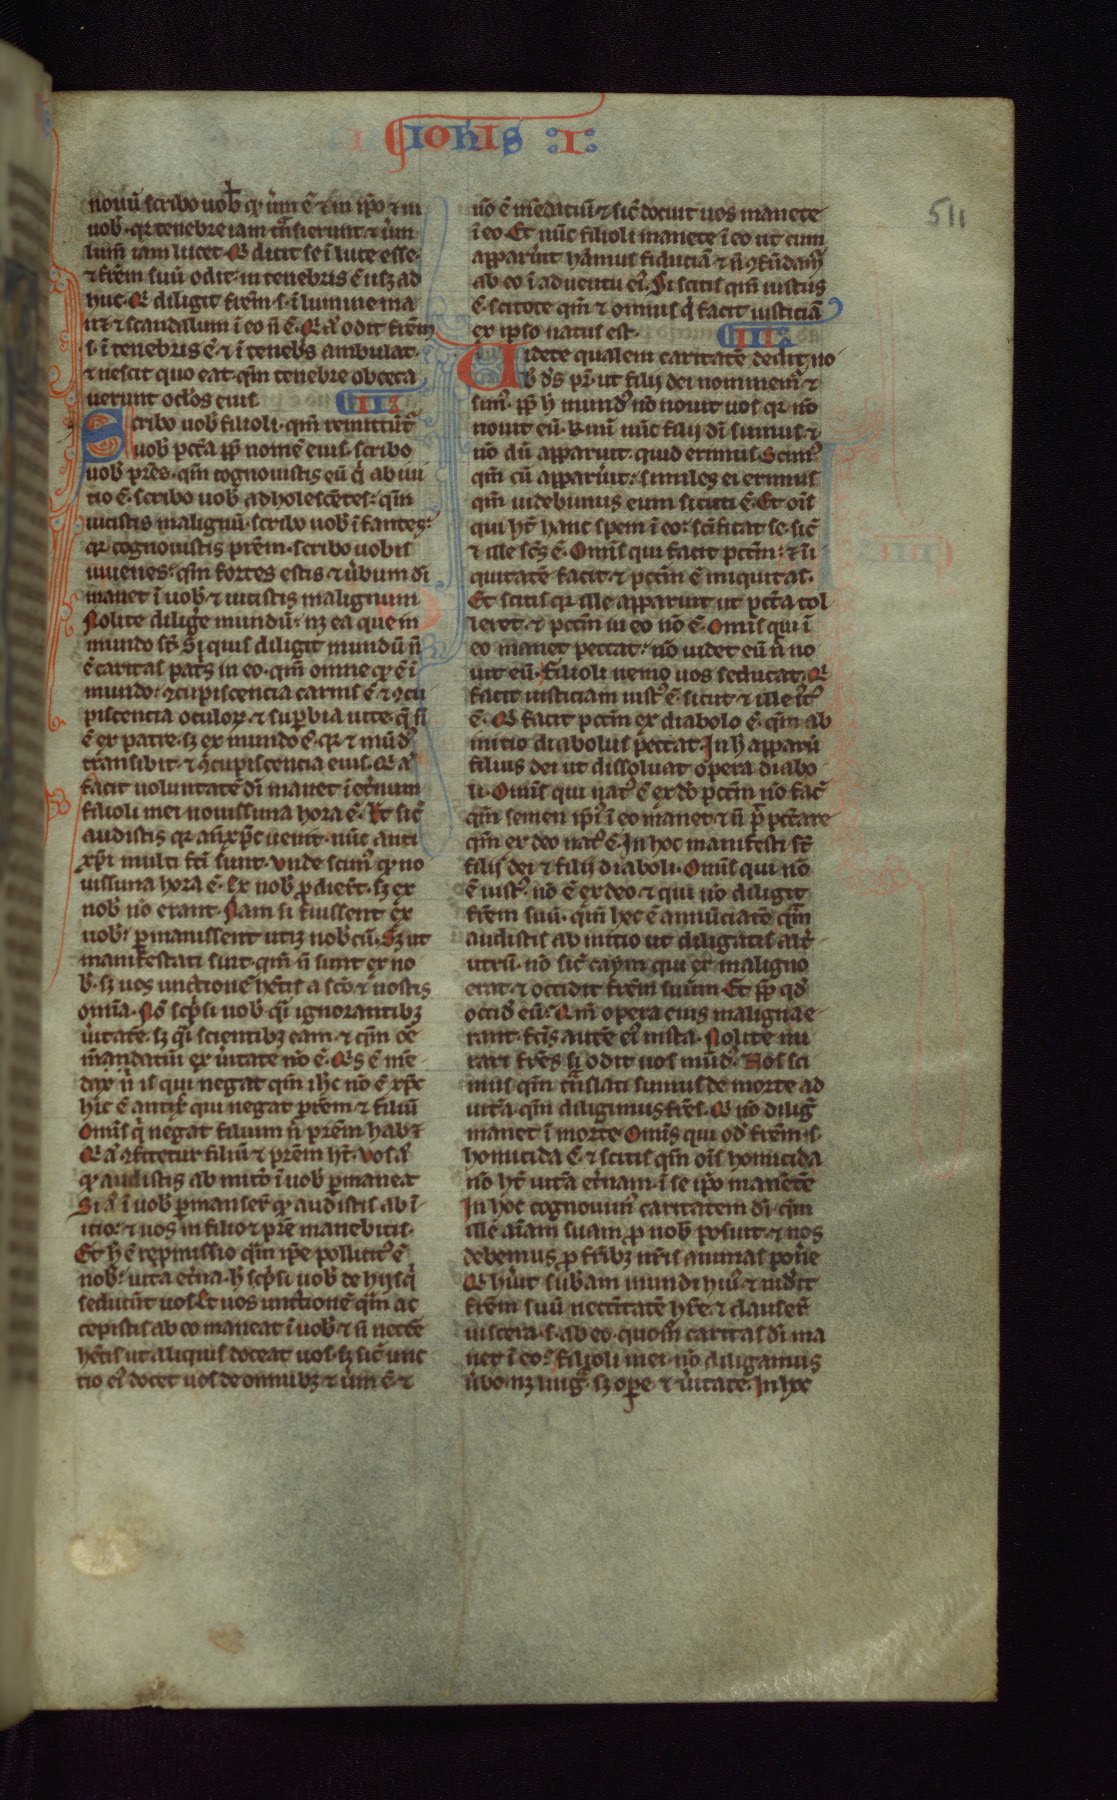 Iohis I
511
nouũ scribo uob̾ qđ uũm ẽ ⁊ in ip̃o ⁊ in
uob̾ qr tenebre iam tñsierunt ⁊ uũm
lum̃ iam lucet. Qͥ dicit se ĩ luce esse
⁊ frẽm suũ odit. in tenebris ẽ usqꝫ ad
huc. Qͥ diligit frẽm .s. ĩ lumine ma
net ⁊ scandalum ĩ eo ñ ẽ. Qͥ aͥ odit frẽm
.s. ĩ tenebris ẽ ⁊ ĩ teneb̾s ambulat.
⁊ nescit quo eat. qm̃ tenebre obceca
uerunt oclos eius
II
Scribo uob̾ filioli. qm̃ remittũt᷑
uob̾ pctã pp̃ nomẽ eius. scribo
uob̾ pr̃es. qm̃ cognouistis eũ qͥ ab ini
tio ẽ. scribo uob̾ adholescẽtes: qm̃
uicistis malignũ. scribo uob̾ ĩfantes:
qr cognouistis pr̃em. scribo uobis
iuuenes: qm̃ fortes estis ⁊ ũbum dĩ
manet ĩ uob̾ ⁊ uicistis malignum
Nolite diligẽ mundũ: nꝫ ea que in
mundo st̃. Si quis diligit mundũ ñ
ẽ caritas patͥs in eo. qm̃ omne qđ ẽ ĩ
mundo: ꝯcupiscencia carnis ẽ ⁊ ꝯcu
piscencia oculoꝝ. ⁊ suꝑbia uite. q̃ ñ
ẽ ex patre. sꝫ ex mundo ẽ. qr ⁊ mũdꝰ
transibit. ⁊ ꝯcupiscencia eius. Qͥ aͥ
facit uoluntatẽ dĩ manet ĩ et̾num
filioli mei nouissima hora ẽ. Et sic̃
audistis qr anͥxp̃c uenit. nũc anti
xp̃i multi fc̃i sunt. vnde scimꝰ qr no
uissima hora ẽ. Ex nob̾ ꝓdiert̃. sꝫ ex
nob̾ nõ erant. Nam si fuissent ex
nob̾: ꝑmanissent utiqꝫ nob̾cũ. Sꝫ ut
manifestati sint. qm̃ ñ sunt ex no
b̾. sꝫ uos unctionẽ hẽtis a scõ ⁊ nostis
omĩa. Nõ scͥpsi uob̾ qͥ ignorantibꝫ
ũitatẽ. sꝫ qͥ scientibꝫ eam. ⁊ qm̃ oẽ
mandatiũ ex ũitate nõ ẽ. Qͥs ẽ me
dax ñ is qui negat qm̃ ihc̃ nõ ẽ xp̃c
hic ẽ antix̃ qui negat pr̃em ⁊ filiũ
Omĩs qͥ negat filium ñ pr̃em habet
Qͥ aͥ ꝯfitetur filiũ ⁊ pr̃em ht̃. Vos aͥ
qđ audistis ab initõ ĩ uob̾ ꝑmaneat
Si aͥ ĩ uob̾ ꝑmanser̃ qđ audistis ab ĩ
itio: ⁊ uos in filio ⁊ pr̃e manebitis.
Et h̾ ẽ repmissio qm̃ ip̃e pollicitꝰ ẽ
nob̾: uita et̾na. h̾ scͥpsi uob̾ de hijs qͥ
seducũt uos Et uos unctionẽ qm̃ ac
cepistis ab eo maneat ĩ uob̾ ⁊ ñ necc̃e
hẽtis ut aliquis doceat uos. sꝫ sic̃ unc
tio eiꝰ docet uos de omnibꝫ ⁊ uũm ẽ. ⁊
nõ ẽ mẽdatiũ. ⁊ sic̃ docuit uos manete
ĩ eo Et nũc filioli manete ĩ eo ut cum
apparũit ham̃us fiduciã ⁊ ñ ꝯfũdam̃
ab eo ĩ aduentu eiꝰ. Si scitis qm̃ iustus
ẽ. scitote qm̃ ⁊ omnis qͥ facit iusticiã
ex ipso natus est.
III
Uidete qualem caritatẽ dedit no
b̾ dẽs pr̃. ut filij dei nominem᷑ ⁊
simꝰ. pp̃ h̾ mundꝰ nõ nouit uos qr nõ
nouit eũ. k̃mi nũc filij dĩ sumus ⁊
nõ dũ apparuit. quid erimus. Scimꝰ
qm̃ cũ apparũit: similes ei erimus
qm̃ uidebimus eum sicuti ẽ. Et oĩs
qui ht̃ hanc spem ĩ eo: sc̃ificat se. sic̃
⁊ ille scũs ẽ. Omĩs qui facit pctm̃: ⁊ ĩi
quitatẽ facit. ⁊ pctm̃ ẽ iniquitas.
Et scitis qr ille apparuit ut pctã tol
leret. ⁊ pctm̃ in eo nõ ẽ. Omĩs qui ĩ
eo manet peccat: nõ uidet eũ ñ no
uit eũ. Filioli nemo uos seducat. Qͥ
facit iusticiam iustꝰ ẽ. sicut ⁊ ille iꝰtꝰ
ẽ. Qͥ facit pctm̃ ex diabolo ẽ. qm̃ ab
initio diabolus peccat. In h̾ apparũ
filius dei ut dissoluat opera diabo
li. Omĩs qui natꝰ ẽ ex dõ pctm̃ nõ fac̃
qm̃ semen ipiꝰ ĩ eo manet. ⁊ ñ p̃ pctãre
qm̃ ex deo natꝰ ẽ. In hoc manifesti st̃
filij dei ⁊ filij diaboli. Omĩs qui nõ
ẽ iustꝰ. nõ ẽ ex deo ⁊ qui nõ diligit
frẽm suũ. qm̃ hec ẽ annũciatõ qm̃
audistis ab initio ut diligatis alt̾
utrũ. nõ sic̃ caym qui ex maligno
erat. ⁊ occidit frẽm suum. Et pp̃ qđ
occidꝰ eũ: Qm̃ opera eius maligna e
rant. frĩs autẽ eiꝰ iusta. Nolite mi
rari frẽs si odit uos mũdꝰ. Nos sci
mus qm̃ tñslati sumus de morte ad
uitã. qm̃ diligimus frẽs. Qͥ nõ dilig̃
manet ĩ morte Omĩs qui odꝰ frẽm .s.
homicida ẽ. ⁊ scitis qm̃ oĩs homicida
nõ ht̃ uitã et̾nam. ĩ se ip̃o manẽtẽ
In hoc cognouimꝰ caritatem dĩ. qm̃
ille aĩam suam ꝓ nob̾ posuit. ⁊ nos
debemus ꝓ frĩbꝫ nrĩs animas ponẽ
Qͥ hũit sub̾am mundi huiꝰ ⁊ uidit
frẽm suũ necc̃itatẽ hr̃e. ⁊ clauser̃
uiscera .s. ab eo. quom̃ caritas dĩ ma
net ĩ eo: filioli mei. nõ diligamus
ũbo. nꝫ ling̃. sꝫ oꝑe. ⁊ ũitate. In hoc